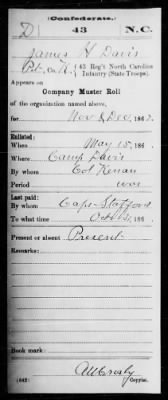 (Confederate.)
D 43 N.C.
James H Davis
Pvt, Co K, 43 Reg't North Carolina
Infantry (State Troops).
Appears on
Company Muster Roll
of the organization named above,
for Nov & Dec, 186
Enlisted:
When May 15, 186
Where Camp Davis
By whom Col Kenan
Period war
Last paid:
By whom Capt Stafford
To what time Oct 31, 186
Present or absent Present
Remarks:
Book mark:
(642) Copyist.